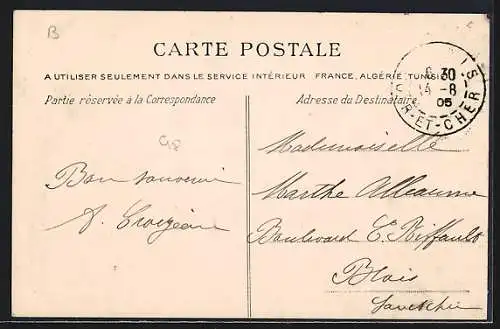 B
CARTE POSTALE
A UTILISER SEULEMENT DANS LE SERVICE INTÉRIEUR FRANCE, ALGÉRIE, TUNISIE
Partie réservée à la Correspondance
Adresse du Destinataire
6 30
14 - 8
05
R-ET-CHER
Bon souvenir
Mademoiselle
Marthe Alleaume
Boulevard E. Riffault
Blois